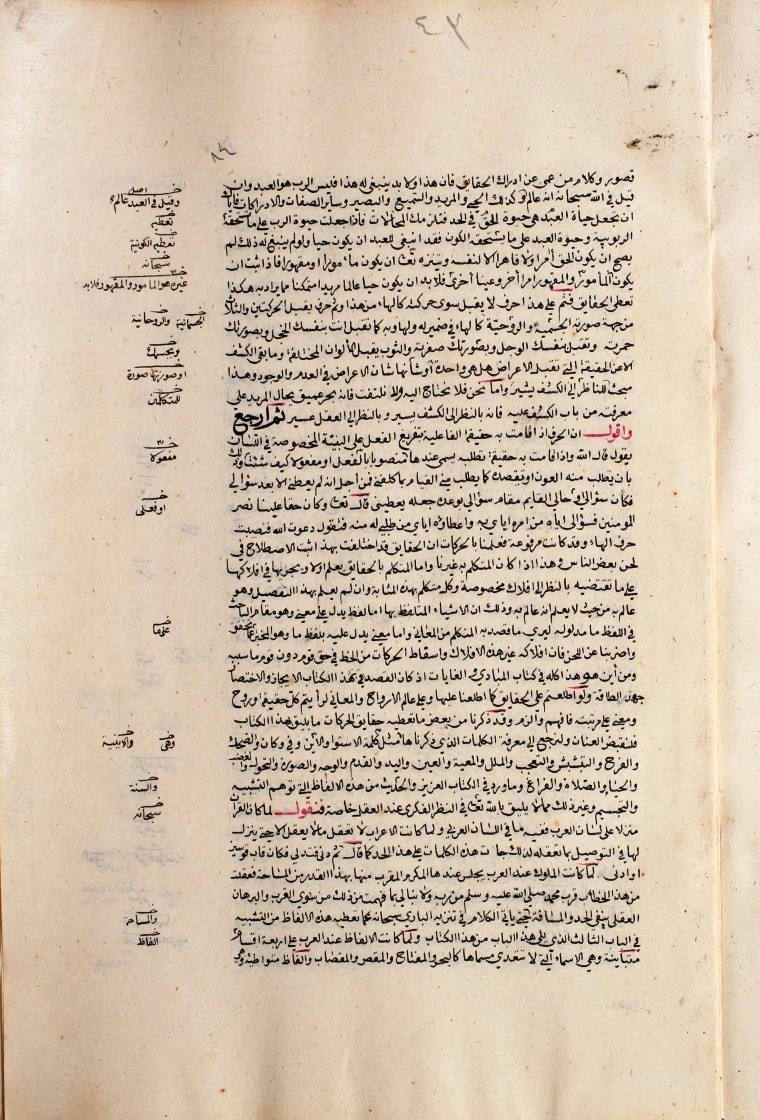 ٤٣
٨٤
قصور وكلام من عمى عن ادراك الحقايق فان هذا ولا بد ينبغي له هذا فليس الرب هو العبد وان
قيل في الله سبحانه انه عالم وكذلك الحي والمريد والسميع والبصير وساير الصفات والادراكات فاياك
ان تجعل حياة العبد هي حيوة الحق في الحد فتلزمك المحالات فاذا جعلت حيوة الرب على ما تستحقه
الربوبية وحيوة العبد على ما يستحقه الكون فقد انبغى للعبد ان يكون حيا ولو لم ينبغي له ذلك لم
يصح ان يكون الحق آمرا ولا قاهرا الا لنفسه ويتنزه تعالى ان يكون مأمورا او مقهورا فاذا ثبت ان
يكون المأمور والمقهور امرا آخر وعينا أخرى فلا بد ان يكون حيا عالما مريدا متمكنا مما يراد به هكذا
تعطى الحقايق فثم على هذا حرف لا يقبل سوى حركته كالهاء من هذا وثم حرف يقبل الحركتين والثلاث
من جهة صورته الجسمية والروحية كالهاء في ضمير له ولها وبه كما تقبل انت بنفسك الخجل وبصورتك
حمرته وتقبل بنفسك الوجل وبصورتك صفرته والثوب يقبل الالوان المختلفة وما بقي الكشف
الا عن الحقيقة التي تقبل الاعراض هل هي واحدة او شأنها شأن الاعراض في العدم والوجود وهذا
مبحث للناظر الى الكشف يشير واما نحن فلا نحتاج اليه ولا نلتفت فانه بحر عميق يحال المريد على
معرفته من باب الكشف عليه فانه بالنظر الى الكشف يسير وبالنظر الى العقل عسير ثم ارجع
واقول ان الحرف اذا قامت به حقيقة الفاعلية بتفريغ الفعل على البنية المخصوصة في اللسان
يقول قال الله واذا قامت به حقيقة تطلبه يسمى عندها منصوبا بالفعل او مفعولا كيف شئت وذلك
بان يطلب منه العون او يقصدك كما يطلب مني القيام بما كلفني فمن اجل انه لم يعطني الا بعد سؤالي
فكان سؤالي او حالي القايم مقام سؤالي بوعده جعله يعطيني قال تعالى وكان حقا علينا نصر
المومنين فسؤالي اياه من امره اياي به واعطاؤه اياي من طلبي له منه فتقول دعوت الله فنصبت
حرف الهاء وقد كانت مرفوعة فعلمنا بالحركات ان الحقايق قد اختلفت بهذا ثبت الاصطلاح في
لحن بعض الناس وهذا اذا كان المتكلم به غيرنا واما المتكلم بالحقايق يعلم اولا ويجريها في افلاكها
على ما تقتضيه بالنظر الى افلاك مخصوصة وكل متكلم بهذه المثابة وان لم يعلم بهذا التفصيل وهو
عالم به من حيث لا يعلم انه عالم به وذلك ان الاشياء المتلفظ بها اما لفظ يدل على معنى وهو مقام الباحث
في اللفظ ما مدلوله ليرى ما قصد به المتكلم من المعاني واما معنى يدل عليه بلفظ ما وهو المخبر عما تحقق
واضربنا عن اللحن فان افلاكه غير هذه الافلاك واسقاط الحركات من الخط في حق قوم دون قوم ما سببه
ومن أين هو هذا اكله في كتاب المبادي والغايات اذ كان القصد في هذا الكتاب الايجاز والاختصار
جهد الطاقة ولو اطلعتم على الحقايق كما اطلعنا عليها وعلى عالم الارواح والمعاني لرأيتم كل حقيقة وروح
ومعنى على مرتبته فافهم والزم وقد ذكرنا من بعض ما تعطيه حقايق الحركات ما يليق بهذا الكتاب
فلنقبض العنان ولنرجع الى معرفة الكلمات الذي ذكرناها مثل كلمة الاستوا والاين وفي وكان والضحك
والفرح والتبشبش والتعجب والملل والمعية والعين واليد والقدم والوجه والصورة والتحول والغضب
والحياء والصلاة والفراغ وما ورد في الكتاب العزيز والحديث من هذه الالفاظ التي توهم التشبيه
والتجسيم وغير ذلك مما لا يليق بالله تعالى في النظر الفكري عند العقل خاصة فنقول لما كان القران
منزلا على لسان العرب ففيه ما في اللسان العربي ولما كانت الاعراب لا تعقل ما لا يعقل الا حتى ينزل
لها في التوصيل بما تعقله لذلك جاءت هذه الكلمات على هذا الحد كما قال ثم دنى فتدلى فكان قاب قوسين
او ادنى لما كانت الملوك عند العرب يجلس عندها المكرم المقرب منها بهذا القدر من المساحة فعقلت
من هذا الخطاب قرب محمد صلى الله عليه وسلم من ربه ولا نبالي بما فهمت من ذلك من سوى القرب والبرهان
العقلي ينفي الحد والمسافة حتى ياتي الكلام في تنزيه الباري سبحانه عما تعطيه هذه الالفاظ من التشبيه
في الباب الثالث الذي يلي هذا الباب من هذا الكتاب ولما كانت الالفاظ عند العرب على اربعة اقسام
متباينة وهي الاسماء التي لا تتعدى مسماها كالبحر والمفتاح والمقص والمقضاب والفاظ متواطية وهي
اصله
وقيل في العبد عالم
تعطيه
تعطيه الكونية
سبحانه
غيره هو المامور والمقهور فلا بد
الجسمانية والروحانية
وبجسمك
او صورتها صورة
للمتكلمين
مفعولا
او فعلى
علما
وهى والابنية
والسنة
سبحانه
والمساحة
الفاظ